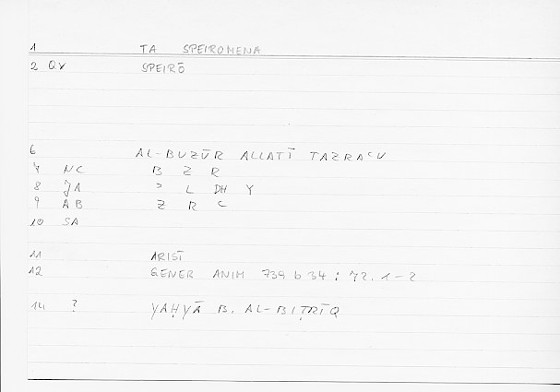 1 TA SPEIROMENA
2 QV SPEIRŌ
6 AL-BUZŪR ALLATĪ TAZRAʿU
7 NC B Z R
8 JA ʾ L DH Y
9 AB Z R ʿ
10 SA
11 ARIST
12 GENER ANIM 739 b 34 ; 72. 1-2
14 ? YAḤYĀ B. AL-BIṬRĪQ